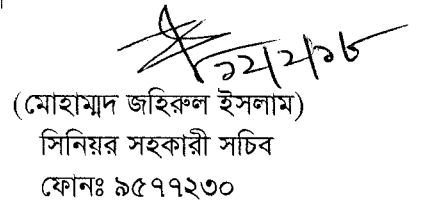 ১২/২/১৮
(মোহাম্মদ জহিরুল ইসলাম)
সিনিয়র সহকারী সচিব
ফোনঃ ৯৫৭৭২৩০